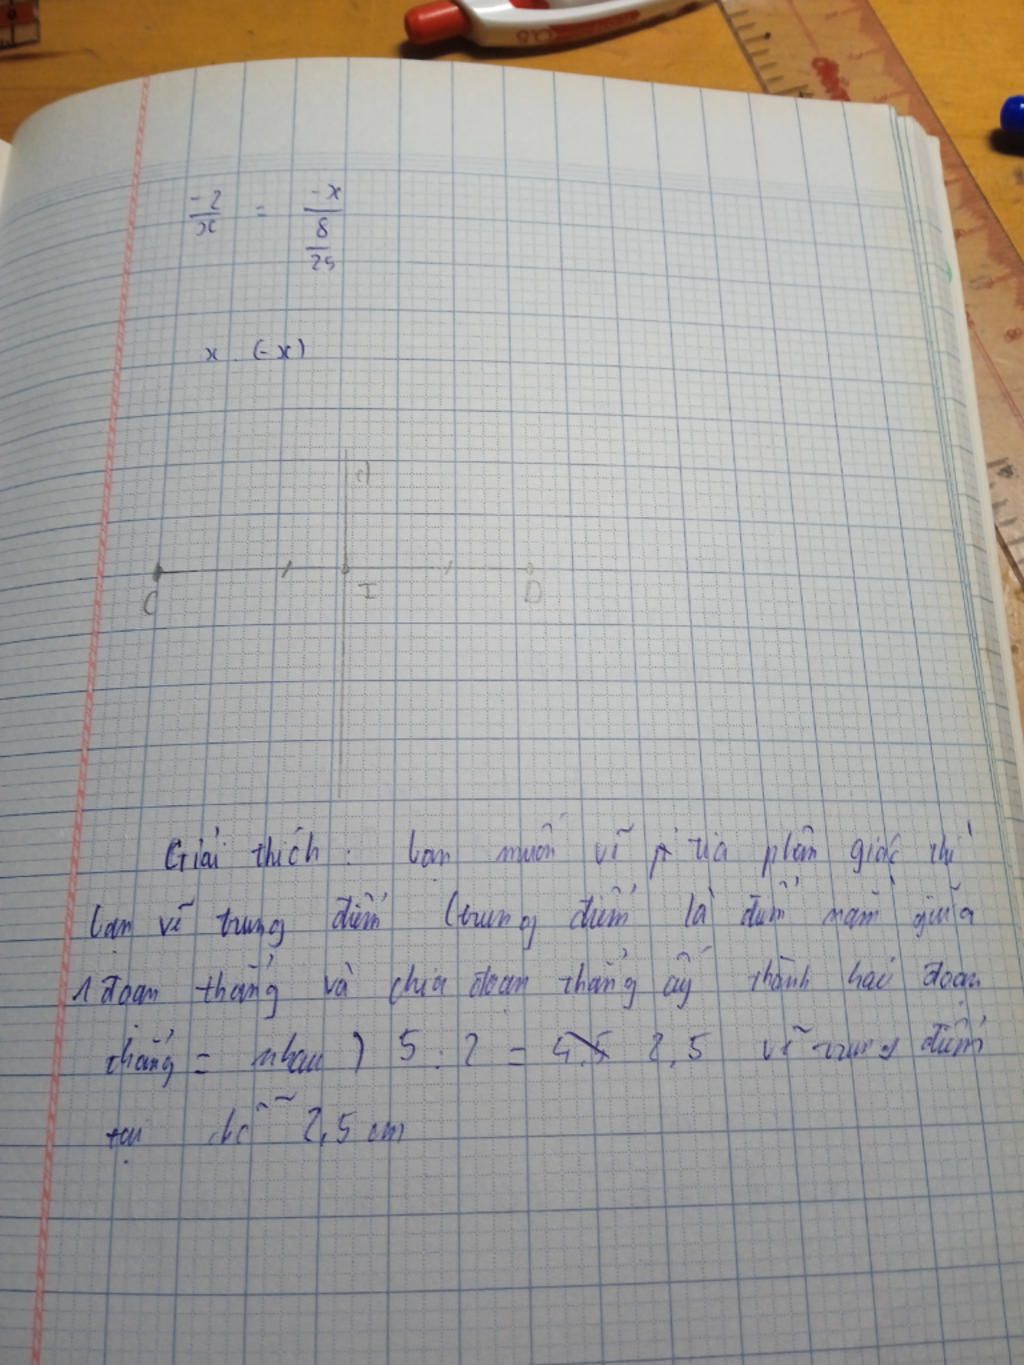 -2/x = -x/(8/25)
x . (-x)
d
C I D
Giải thích : bạn muốn vẽ tia phân giác thì
bạn vẽ trung điểm (trung điểm là điểm nằm giữa
1 đoạn thẳng và chia đoạn thẳng ấy thành hai đoạn
thẳng = nhau ) 5 : 2 = 2,5 vẽ trung điểm
tại chỗ 2,5 cm